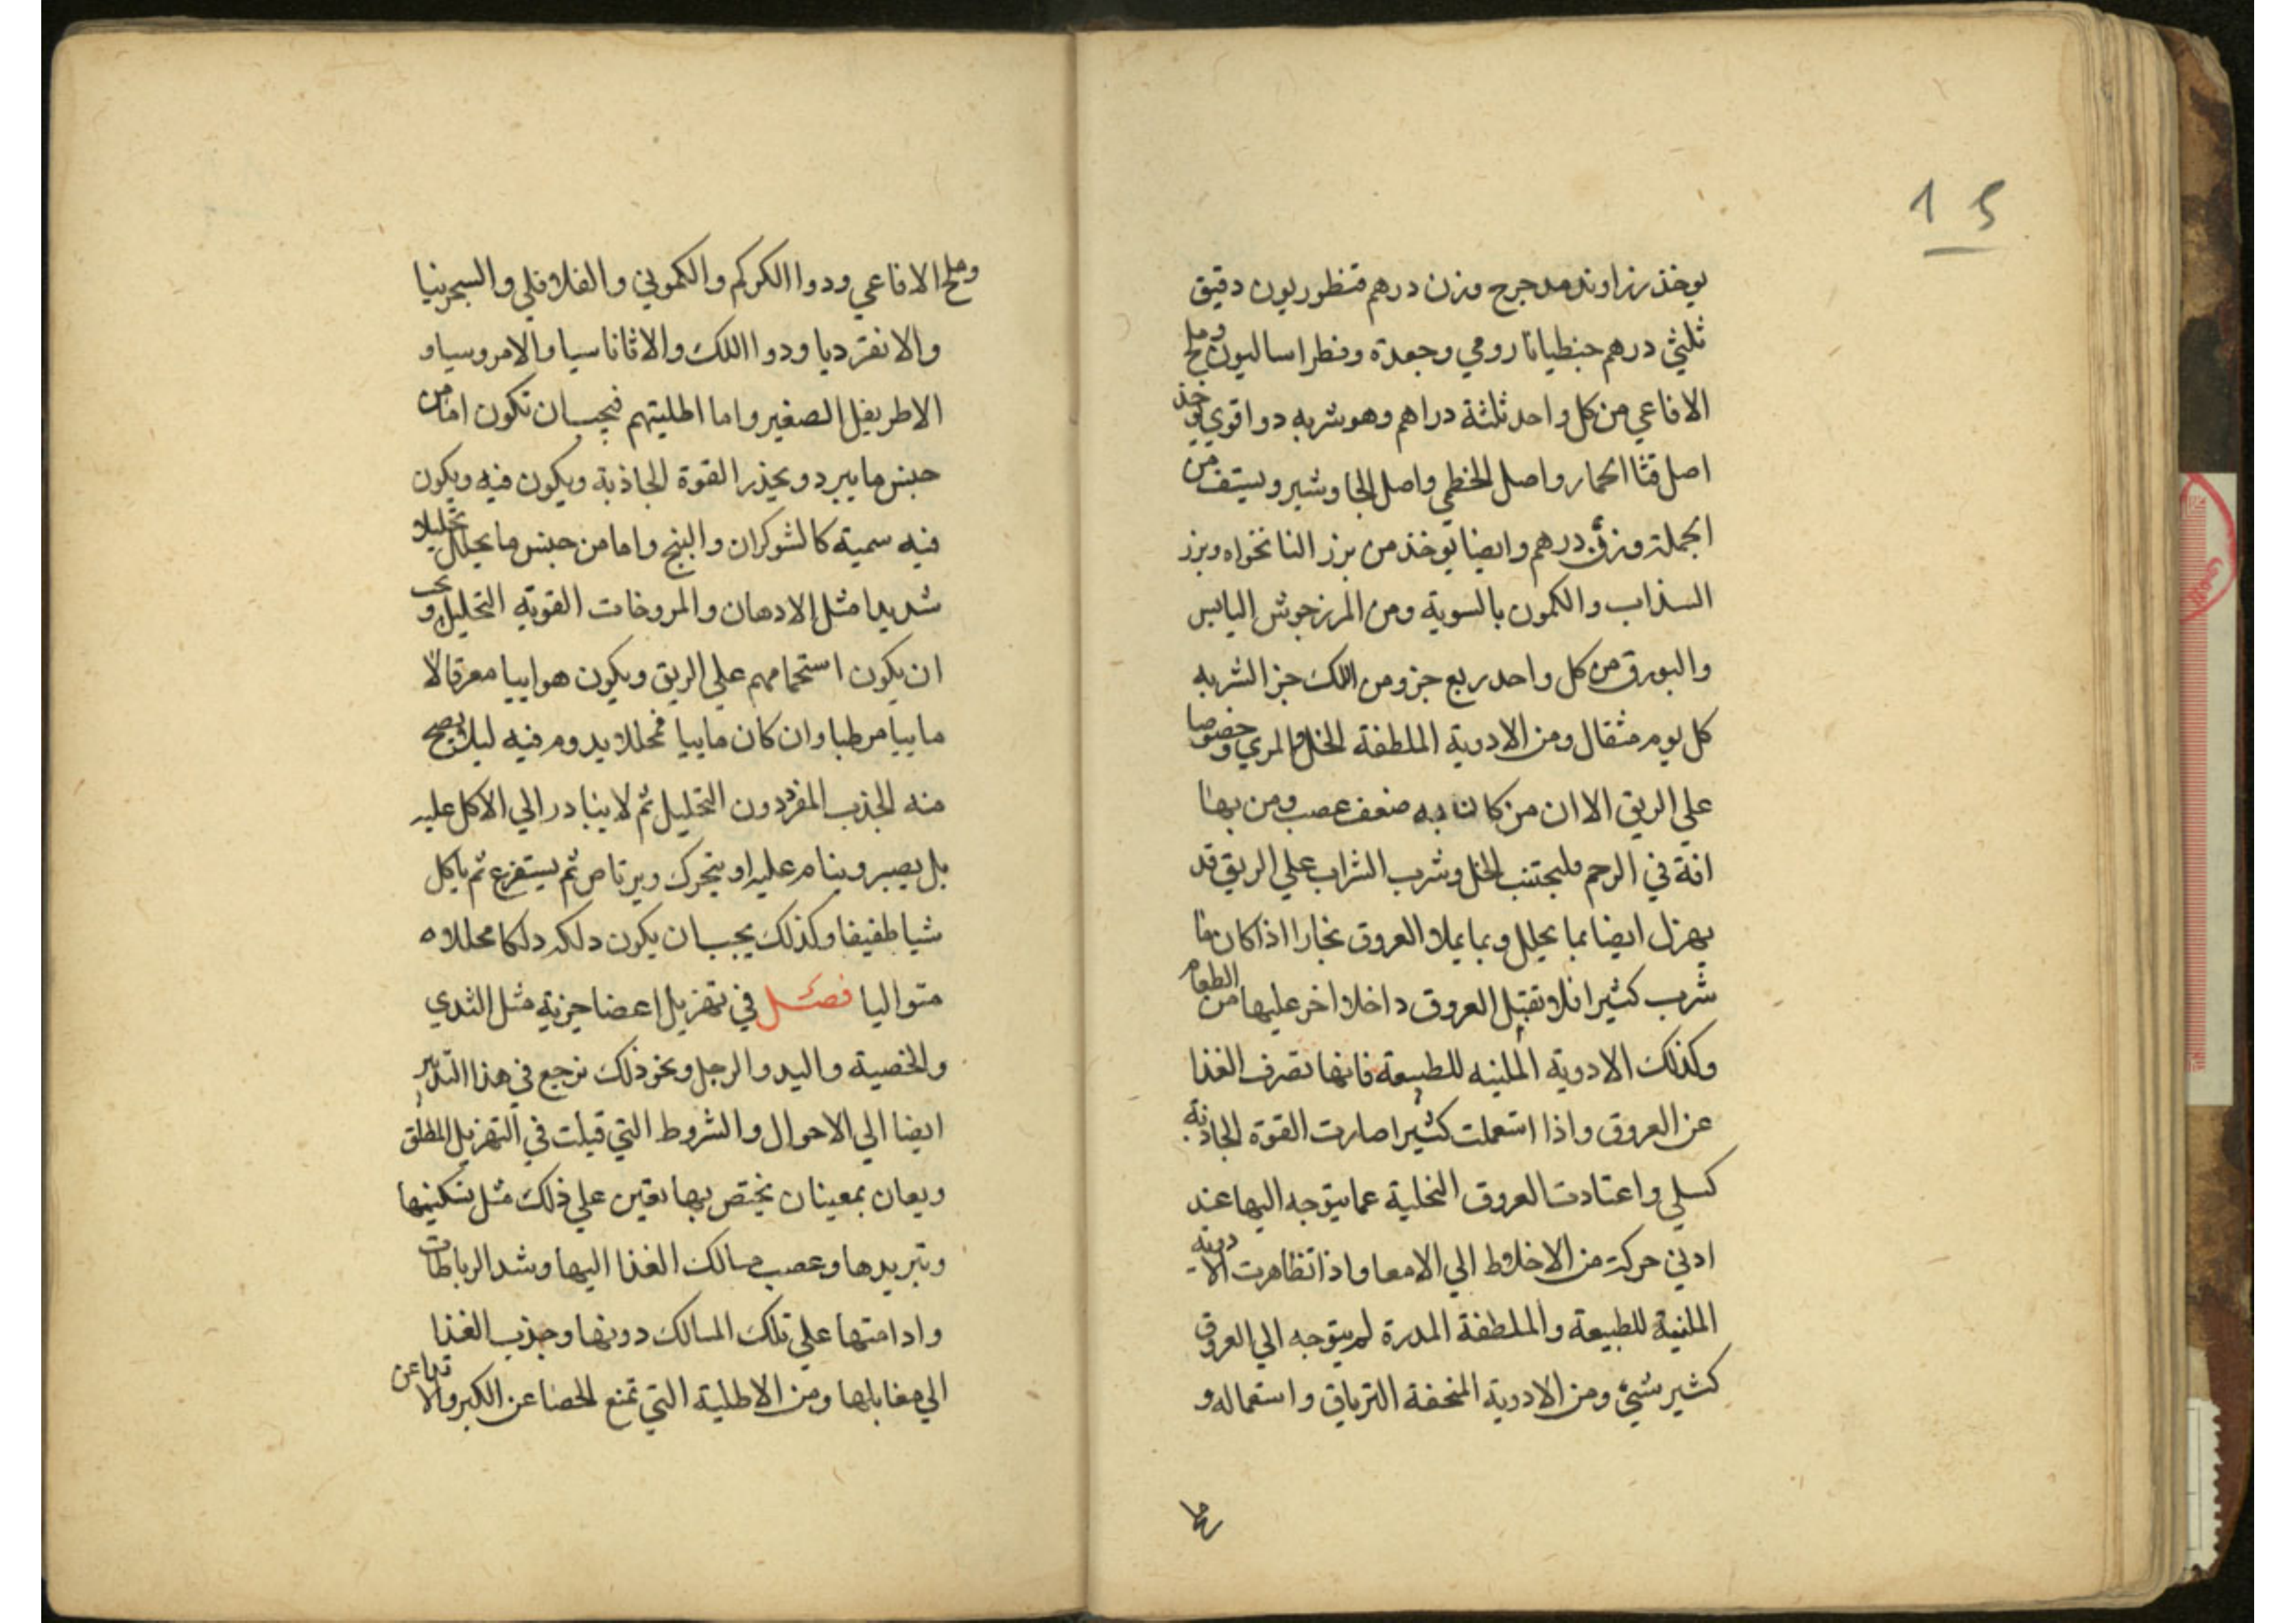 15
يوخذ رزاوند مدحرج وزن درهم قنطوريون دقيق
ثلثي درهم جنطيانا رومي وجعدة وفطراساليون وملح
الافاعي من كل واحد ثلثة دراهم وهو شربه دوا قوي يوخذ
اصل قثا الحمار واصل الخطمي واصل الجاوشير ويستف من
الجملة وزن درهم وايضا يوخذ من بزر النانخواه وبزر
السذاب والكمون بالسوية ومن المرزجوش اليابس
والبورق من كل واحد ربع جز ومن اللك جز الشربه
كل يوم مثقال ومن الادوية الملطفة الخل والمري وخصوصا
علي الريق الا ان من كان به ضعف عصب ومن بها
افة في الرحم فليجتنب الخل وشرب الشراب علي الريق قد
يهزل ايضا بما يحلل وبما يملا العروق بخارا اذا كان ما
شرب كثيرا فلا تقبل العروق داخلا اخر عليها من الطعام
وكذلك الادوية الملينه للطبيعة فانها تصرف الغذا
عن العروق واذا استعملت كثيرا صارت القوة الجاذبة
كسلي واعتادت العروق التخلية عما يتوجه اليها عند
ادني حركة من الاخلاط الي الامعا واذا تظاهرت الادوية
الملنية للطبيعة والملطفة المدرة لم يتوجه الي العروق
كثير شيء ومن الادوية المنحفة الترياق واستعماله و
وملح
وملح الافاعي ودوا الكركم والكموني والفلافلي والسجرنيا
والانقرديا ودوا اللك والاثاناسيا والامروسيا و
الاطريفل الصغير واما اطليتهم فيجب ان تكون اما من
جنس ما يبرد ويخدر القوة الجاذبة ويكون فيه ويكون
فيه سمية كالشوكران والبنج واما من جنس ما يحلل تحليلا
شديدا مثل الادهان والمروخات القوية التحليل ويجب
ان يكون استحمامهم علي الريق ويكون هواييا معرقا لا
ماييا مرطبا وان كان ماييا محللا يدوم فيه ليلا يصح
منه الجذب المفرد دون التحليل ثم لا يتبادر الي الاكل عليه
بل يصبر وينام عليه او يتحرك ويرتاض ثم يستفرغ ثم ياكل
شيا طفيفا وكذلك يجب ان يكون دلكه دلكا محللا ه
متواليا فصل في تهزيل اعضا جزية مثل الثدي
والخصية واليد والرجل ونحو ذلك نرجع في هذا التدبير
ايضا الي الاحوال والشروط التي قيلت في التهزيل المطلق
ويعان بمعينات يختص بها يعين علي ذلك مثل تسكينها
وتبريدها وعصب مسالك الغذا اليها وشد الرباطات
وادامتها علي تلك المسالك دونها وجذب الغذا
الي مقابلها ومن الاطلية التي تمنع الخصا عن الكبر والاثدا عن